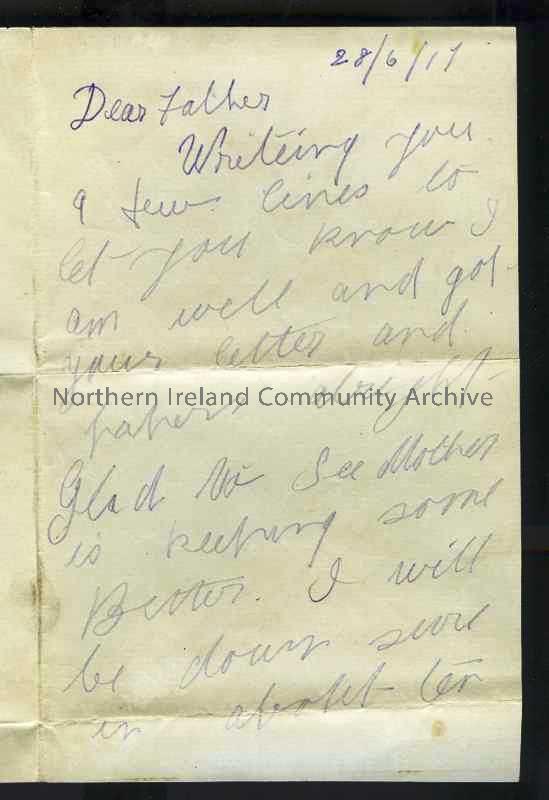 28/6/17
Dear Father
Writeing you
a few lines to
let you know I
am well and got
your letter and
papers alright
Northern Ireland Community Archive
Glad to See Mother
is keeping some
Better. I will
be down sure
in about ten